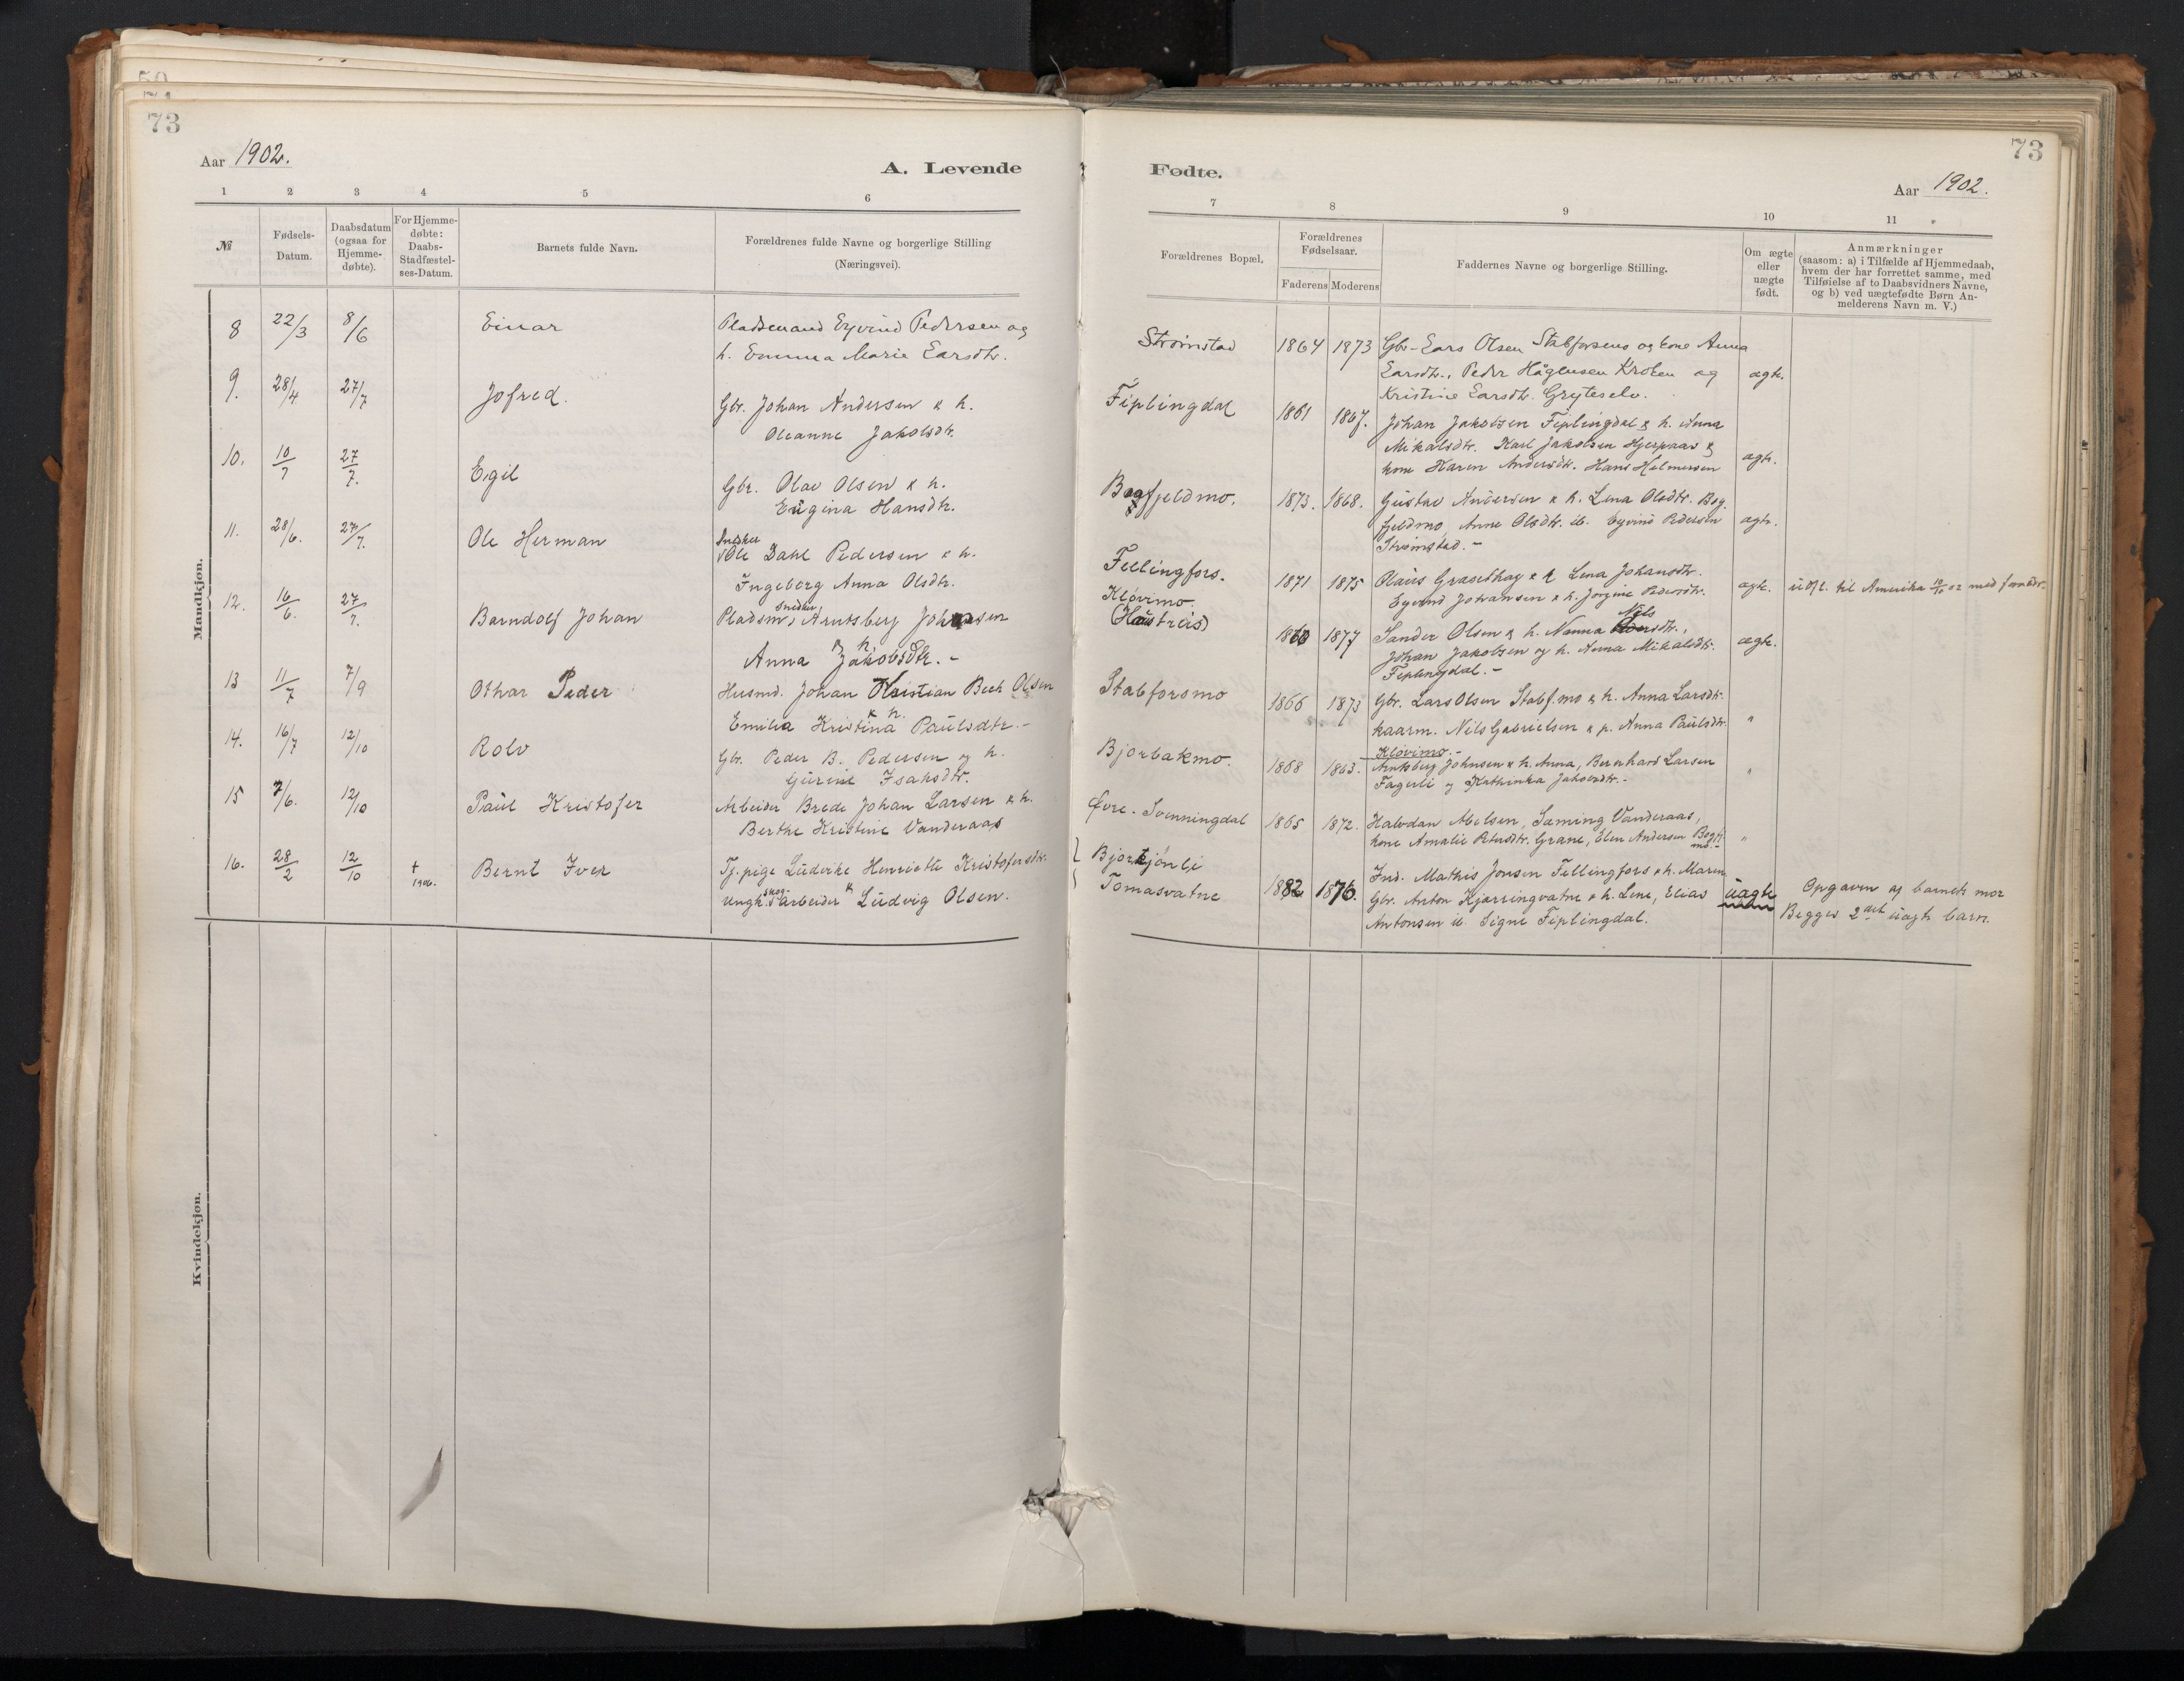 73
Aar 1902.
A. Levende
1 2 3 4 5 6
№
Fødsels-Datum.
Daabsdatum (ogsaa for Hjemme-døbte).
For Hjemme-døbte: Daabs-Stadfæstel-ses-Datum.
Barnets fulde Navn.
Forældrenes fulde Navne og borgerlige Stilling
(Næringsvei).
Mandkjøn.
8 22/3 8/6 Einar Pladsemand Eyvind Pedersen og
h. Emma Marie Larsdtr.
9. 28/4 27/7 Jofred. Gbr. Johan Andersen & h.
Oleanne Jakobsdtr.
10. 10/7 27/7. Egil Gbr. Olav Olsen & h.
Eugina Hansdtr.
11. 28/6. 27/7. Ole Herman Snedker Ole Dahl Pedersen & h.
Ingeborg Anna Olsdtr.
12. 16/6. 27/7. Barndolf Johan Pladsm, snedker Arntsberg Johnsen
& h. Anna Jakobsdtr.
13 11/7 7/9 Othar Peder Husmd. Johan Kristian Bech Olsen
& h. Emilia Kristina Paulsdtr.
14. 16/7 12/10 Rolv Gbr. Peder B. Pedersen og h.
Gurine Isaksdtr.
15 7/6. 12/10 Paul Kristofer Arbeider Brede Johan Larsen & h.
Berthe Kristine Vanderaas
16. 28/2 12/10 † 1906. Bernt Iver Tj. pige Ludvike Henriette Kristofersdtr.
& Ungk. skogarbeider Ludvig Olsen.
Kvindekjøn.
73
Fødte.
Aar 1902.
7 8 9 10 11
Forældrenes Bopæl.
Forældrenes Fødselsaar.
Faderens Moderens
Faddernes Navne og borgerlige Stilling.
Om ægte eller uægte født.
Anmærkninger
(saasom: a) i Tilfælde af Hjemmedaab,
hvem der har forrettet samme, med
Tilføielse af to Daabsvidners Navne,
og b) ved uægtefødte Børn An-
melderens Navn m. V.)
Strømstad 1864 1873 Gbr. Lars Olsen Stabforsmo og kone Anna
Larsdtr., Peder Hågensen Kroken og ægte.
Kristine Larsdtr. Gryteselv.
Fiplingdal 1861 1867. Johan Jakobsen Fiplingdal & h. Anna
Mikalsdtr. Karl Jakobsen Hjerpaas &
kone Karen Andersdtr. Hans Helmersen ægte.
Bogfjeldmo. 1873. 1868. Gustav Andersen & h. Lena Olsdtr. Bog-
fjeldmo, Anne Olsdtr. ib. Eyvind Pedersen ægte.
Strømstad.
Fellingfors. 1871 1875 Olaus Græsethay & h. Lena Johansdtr.
Eyvind Johansen & h. Jørgine Pedersdtr. ægte. udfl. til Amerika 10/10 02 med foreldr.
Kløvimo
(Haustreis) 1860 1877 Sander Olsen & h. Nanna Nilsdtr.,
Johan Jakobsen og h. Anna Mikalsdtr. ægte.
Fiplingdal.
Stabforsmo 1866 1873 Gbr. Lars Olsen Stabf.mo & h. Anna Larsdtr.
kaarm. Nils Gabrielsen & p. Anna Paulsdtr. "
Bjorbakmo. 1868 1863. Kløvimo.
Arntsberg Johnsen & h. Anna, Bernhard Larsen
Fagerli og Kathinka Jakobsdtr. "
Øvre-Svenningdal 1865 1872. Halvdan Nielsen, Saming Vanderaas,
kone Amalie Petersdtr. Grane, Elen Andersen Bogfj.mo. "
Bjortjønli
Tomasvatne 1882 1876. Ind. Mathis Jonsen Fellingfors & h. Maren
Gbr. Anton Kjærringvatne & h. Lene, Elias uægte
Antonsen ib. Signe Fiplingdal.
Opgaven af barnets mor
Begges 2det uægte barn.